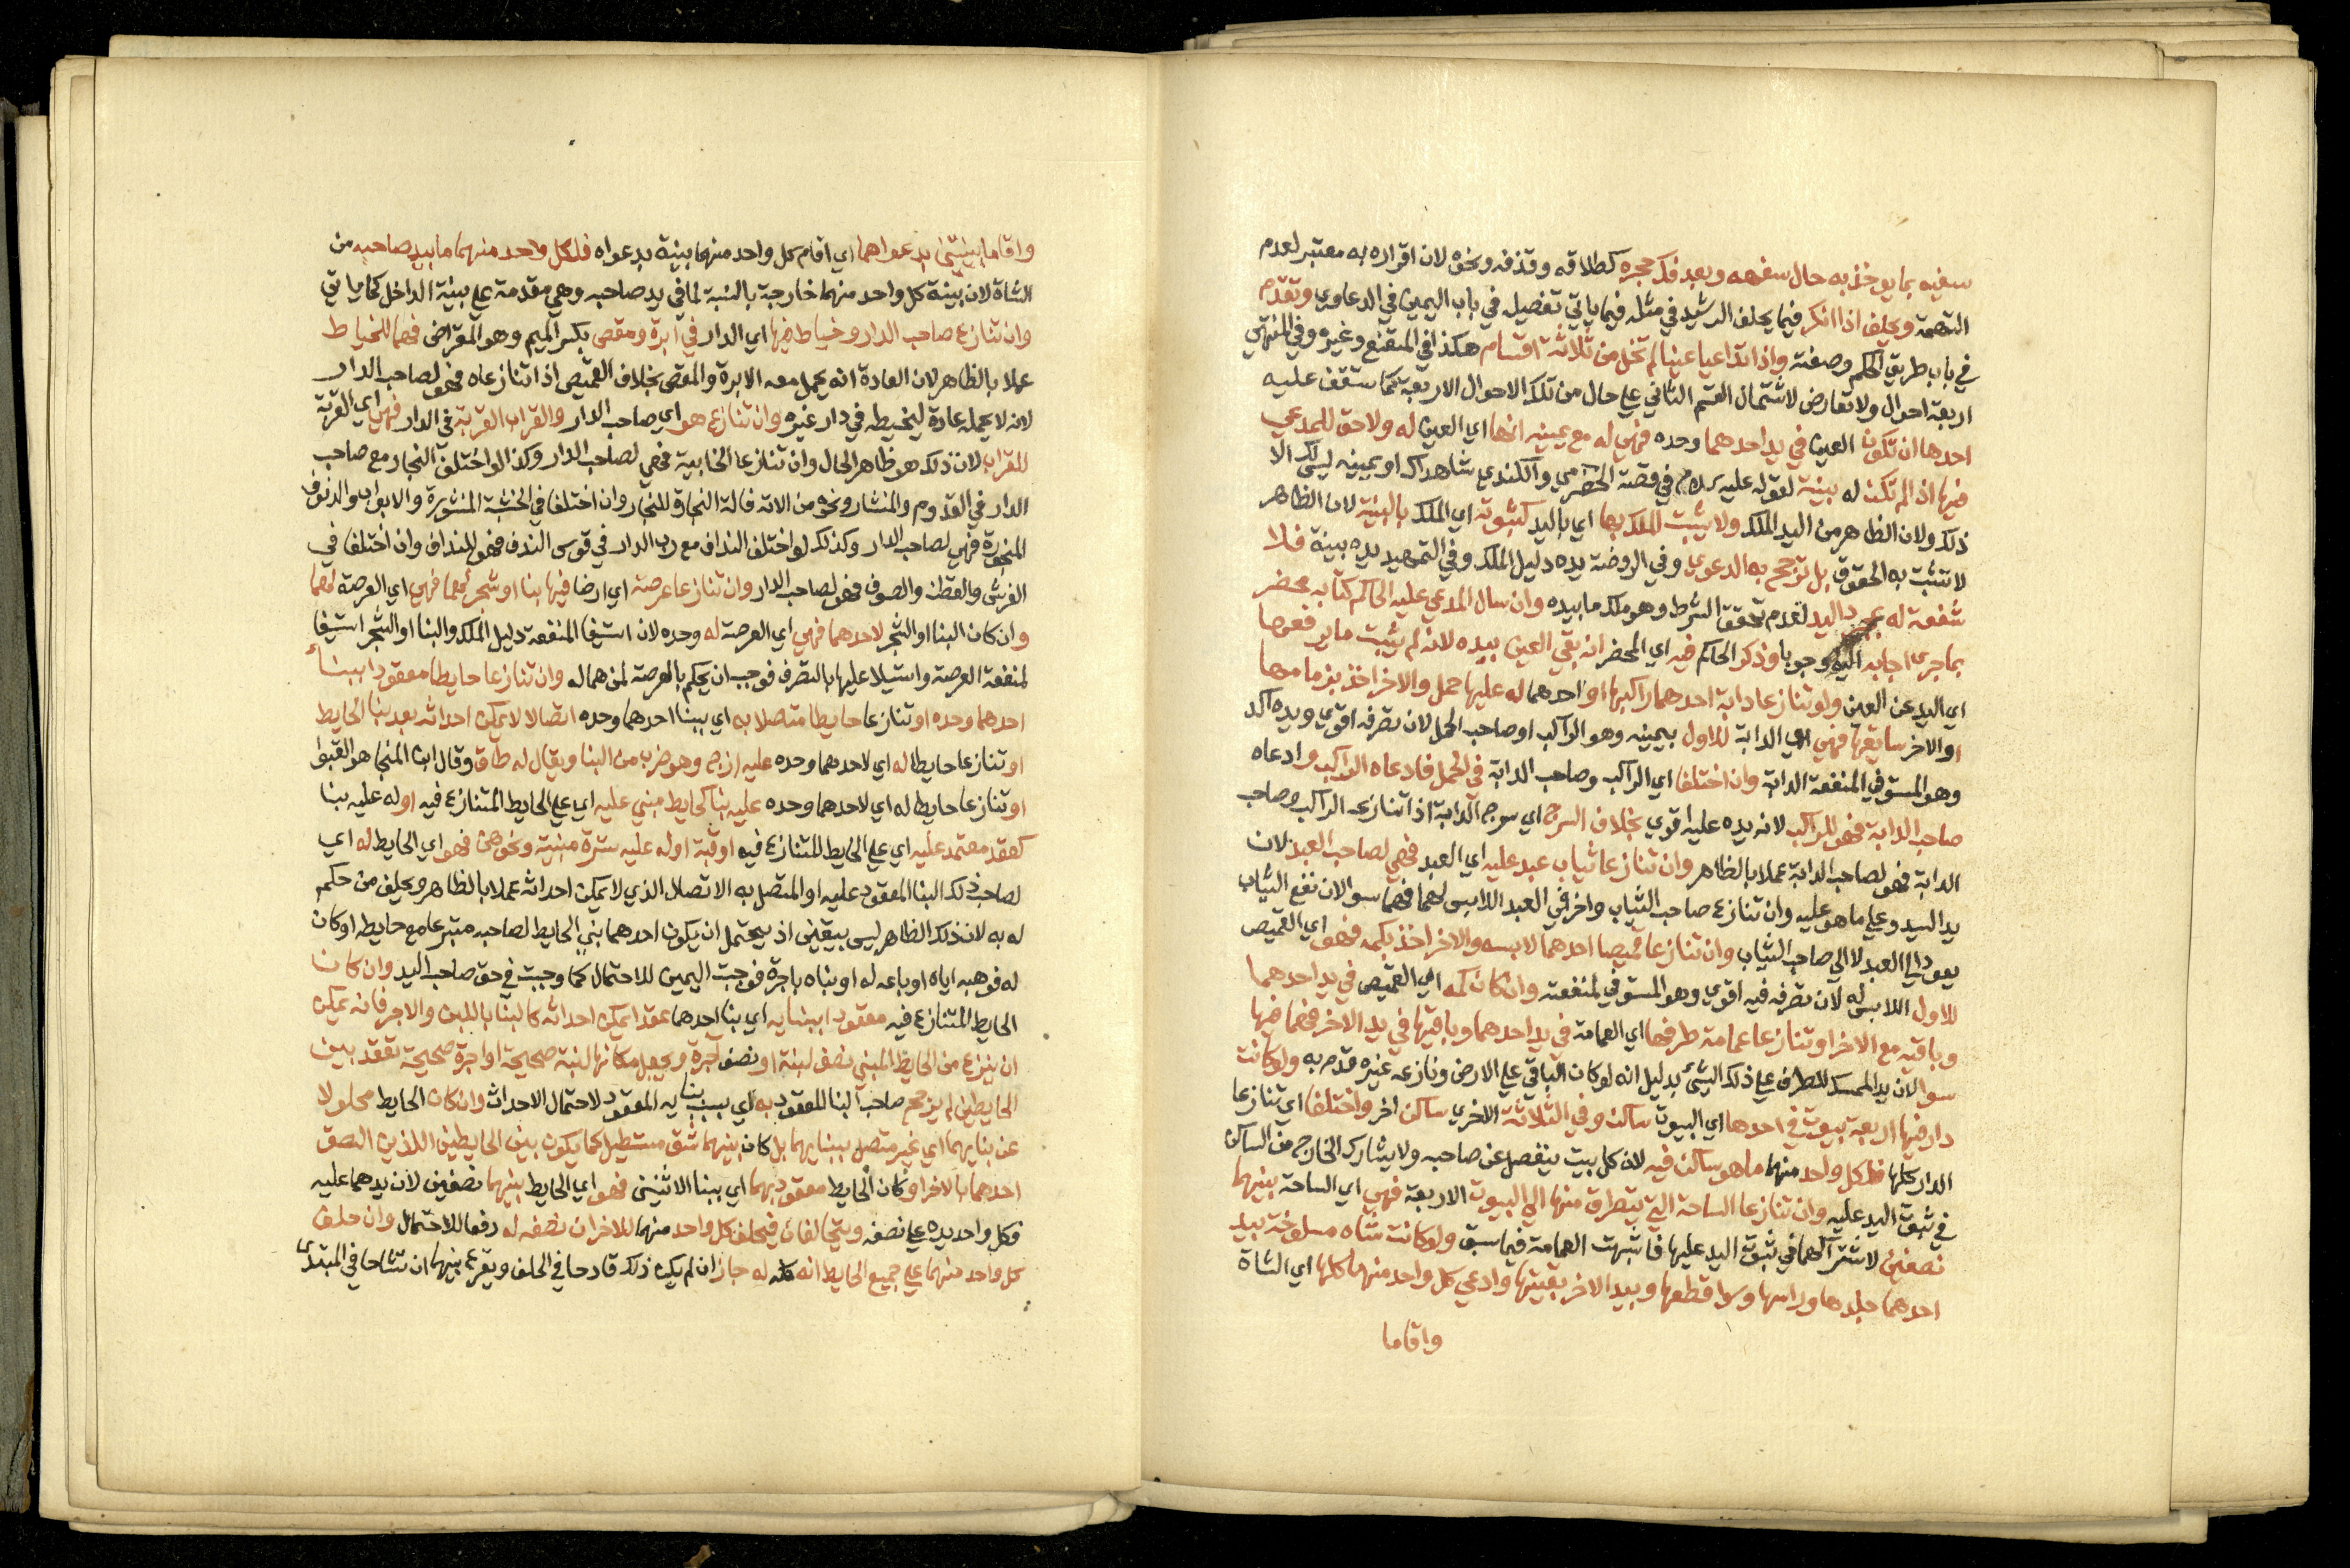 سفيه بما يوخذ به حال سفهه وبعد فك حجره كطلاقه وقذفه ونحوه لان اقراره به معتبر لعدم
التهمة ويحلف اذا انكر فيما يحلف الرشيد في مثله فيما ياتي تفصيله في باب اليمين في الدعاوي وتقدم
في باب طريق الحكم وصفته واذا تداعيا عينا لم تخل من ثلاثة اقسام هكذا في المقنع وغيره وفي المنتهى
اربعة احوال ولا تعارض لاشتمال القسم الثاني على حال من تلك الاحوال الاربعة كما ستقف عليه
احدها ان تكون العين في يد احدهما وحده فهي له مع يمينه انها اي العين له ولا حق للمدعي
فيها اذا لم تكن له بينة لقوله عليه السلام في قصة الحضرمي والكندي شاهداك او يمينه ليس لك الا
ذلك ولان الظاهر من اليد الملك ولا يثبت الملك بها اي باليد كثبوته اي الملك بالبينة لان الظاهر
لا تثبت به الحقوق بل ترجح به الدعوي وفي الروضة يده دليل الملك وفي التمهيد يده بينة فلا
شفعة له بمجرد اليد لعدم تحقق الشرط وهو ملك ما بيده وان سال المدعي عليه الحاكم كتابه محضر
بما جرى اجابه اليه وجوبا وذكر الحاكم فيه اي المحضر انه بقي العين بيده لانه لم يثبت ما يرفعها
اي اليد عن العين ولو تنازعا دابة احدهما راكبها او احدهما له عليها حمل والاخر اخذ بزمامها
او الاخر سايقها فهي اي الدابة للاول بيمينه وهو الراكب او صاحب الحمل لان تصرفه اقوي ويده اكد
وهو المستوفي لمنفعة الدابة وان اختلفا اي الراكب وصاحب الدابة في الحمل فادعاه الراكب وادعاه
صاحب الدابة فهو للراكب لانه يده عليه اقوي بخلاف السرج اي سرج الدابة اذا تنازعه الراكب وصاحب
الدابة فهو لصاحب الدابة عملا بالظاهر وان تنازعا ثياب عبد عليه اي العبد فهي لصاحب العبد لان
يد السيد وعلى ما هو عليه وان تنازع صاحب الثياب واخر في العبد اللابس لهما فهما سوا لان نفع الثياب
يعود الى العبد لا الي صاحب الثياب وان تنازعا قميصا احدهما لابسه والاخر اخذ بكمه فهو اي القميص
للاول اللابس له لان تصرفه فيه اقوي وهو المستوفي لمنفعته وان كان كمه اي القميص في يد احدهما
وباقيه مع الاخر او تنازعا عمامة طرفها اي العمامة في يد احدهما وباقيها في يد الاخر فهما فيها
سوا لان يد الممسك للطرف على ذلك الشئ بدليل انه لو كان الباقي على الارض ونازعه غيره قدم به ولو كانت
دار فيها اربعة بيوت في احدها اي البيوت ساكن وفي الثلاثة الاخري ساكن اخر واختلفا اي تنازعا
الدار كلها فلكل واحد منهما ما هو ساكن فيه لان كل بيت ينفصل عن صاحبه ولا يشارك الخارج من الساكن
في ثبوت اليد عليه وان تنازعا الساحة التي يتطرق منها الى البيوت الاربعة فهي اي الساحة بينهما
نصفين لاشتراكهما في ثبوت اليد عليها فاشبهت العمامة فيما سبق ولو كانت شاه مسلوخة بيد
احدهما جلدها وراسها وسواقطها وبيد الاخر بقيتها وادعي كل واحد منهما كلها اي الشاة
واقاما
واقاما بينتين بدعواهما اي اقام كل واحد منهما بينة بدعواه فلكل واحد منهما ما بيد صاحبه من
الشاة لان بينة كل واحد منهما خارجة بالنسبة لما في يد صاحبه وهي مقدمة على بينة الداخل كما ياتي
وان تنازع صاحب الدار وخياط فيها اي الدار في ابرة ومقص بكسر الميم وهو المقراض فهما للخياط
عملا بالظاهر لان العادة انه يحمل معه الابرة والمقص بخلاف القميص اذا تنازعاه فهو لصاحب الدار
لانه لا يحمله عادة ليخيطه في دار غيره وان تنازع هو اي صاحب الدار والقراب القربة في الدار فهي اي القربة
للقراب لان ذلك هو ظاهر الحال وان تنازعا الخابية فهي لصاحب الدار وكذا لو اختلف النجار مع صاحب
الدار في القدوم والمنشار ونحوه من الاته فالة النجارة للنجار وان اختلفا في الخشبة المنشورة والابواب والرفوف
المنجورة فهي لصاحب الدار وكذلك لو اختلف النداف مع رب الدار في قوس الندف فهو للنداف وان اختلفا في
الفرش والقطن والصوف فهو لصاحب الدار وان تنازعا عرصة اي ارضا فيها بنا او شجر لهما فهي اي العرصة لهما
وان كان البنا او الشجر لاحدهما فهي اي العرصة له وحده لان استيفا المنفعة دليل الملك والبنا او الشجر استيفا
لمنفعة العرصة واستيلا عليها بالتصرف فوجب ان يحكم بالعرصة لمن هما له وان تنازعا حايطا معقودا ببناء
احدهما وحده او تنازعا حايطا متصلا به اي ببنا احدهما وحده اتصالا لا يمكن احداثه بعد بنا الحايط
او تنازعا حايطا له اي لاحدهما وحده عليه ازج وهو ضرب من البنا ويقال له طاق وقال ابن المنجا هو القبو
او تنازعا حايطا له اي لاحدهما وحده عليه بنا كحايط مبني عليه اي على الحايط المتنازع فيه او له عليه بنا
كعقد معتمد عليه اي على الحايط المتنازع فيه او قبة او له عليه سترة مبنية ونحو هن فهو اي الحايط له اي
لصاحب ذلك البنا المعقود عليه او المتصل به الاتصال الذي لا يمكن احداثه عملا بالظاهر ويحلف من حكم
له به لان ذلك الظاهر ليس بيقين اذ يحتمل ان يكون احدهما بني الحايط لصاحبه متبرعا مع حايطه او كان
له فوهبه اياه او باعه له او بناه باجرة فوجبت اليمين للاحتمال كما وجبت في حق صاحب اليد وان كان
الحايط المتنازع فيه معقودا ببنايه اي بنا احدهما عقدا يمكن احداثه كالبنا باللبن والاجر فانه يمكن
ان ينزع من الحايط المبني نصف لبنة او نصف اجرة ويجعل مكانها لبنة صحيحة او اجرة صحيحة تعقد بين
الحايطين لم يرجح صاحب البنا المعقود به اي بسبب بنايه المعقود لاحتمال الاحداث وان كان الحايط محلولا
عن بنايهما اي غير متصل ببنايهما بل كان بينهما شق مستطيل كما يكون بين الحايطين اللذين الصق
احدهما بالاخر او كان الحايط معقودا بهما اي ببنا الاثنين فهو اي الحايط بينهما نصفين لان يدهما عليه
فكل واحد يده على نصفه ويتحالفان فيحلف كل واحد منهما للاخر ان نصفه له دفعا للاحتمال وان حلف
كل واحد منهما على جميع الحايط انه كله له جاز ان لم يكن ذلك قادحا في الحلف ويقرع بينهما ان تشاحا في المبتدى